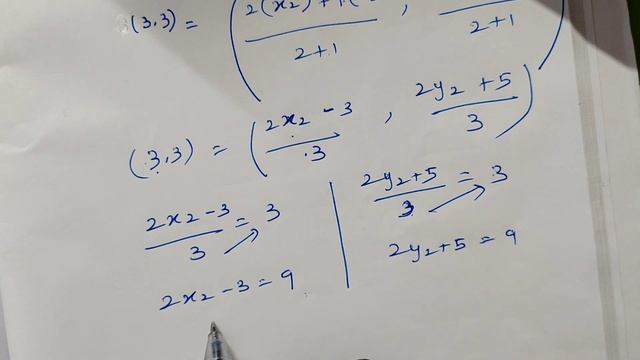 (3,3) = ( 2(x₂)+1( / 2+1 , / 2+1 )
(3,3) = ( 2x₂ - 3 / 3 , 2y₂ + 5 / 3 )
2x₂ - 3 / 3 = 3
2x₂ - 3 = 9
2y₂+5 / 3 = 3
2y₂+5 = 9